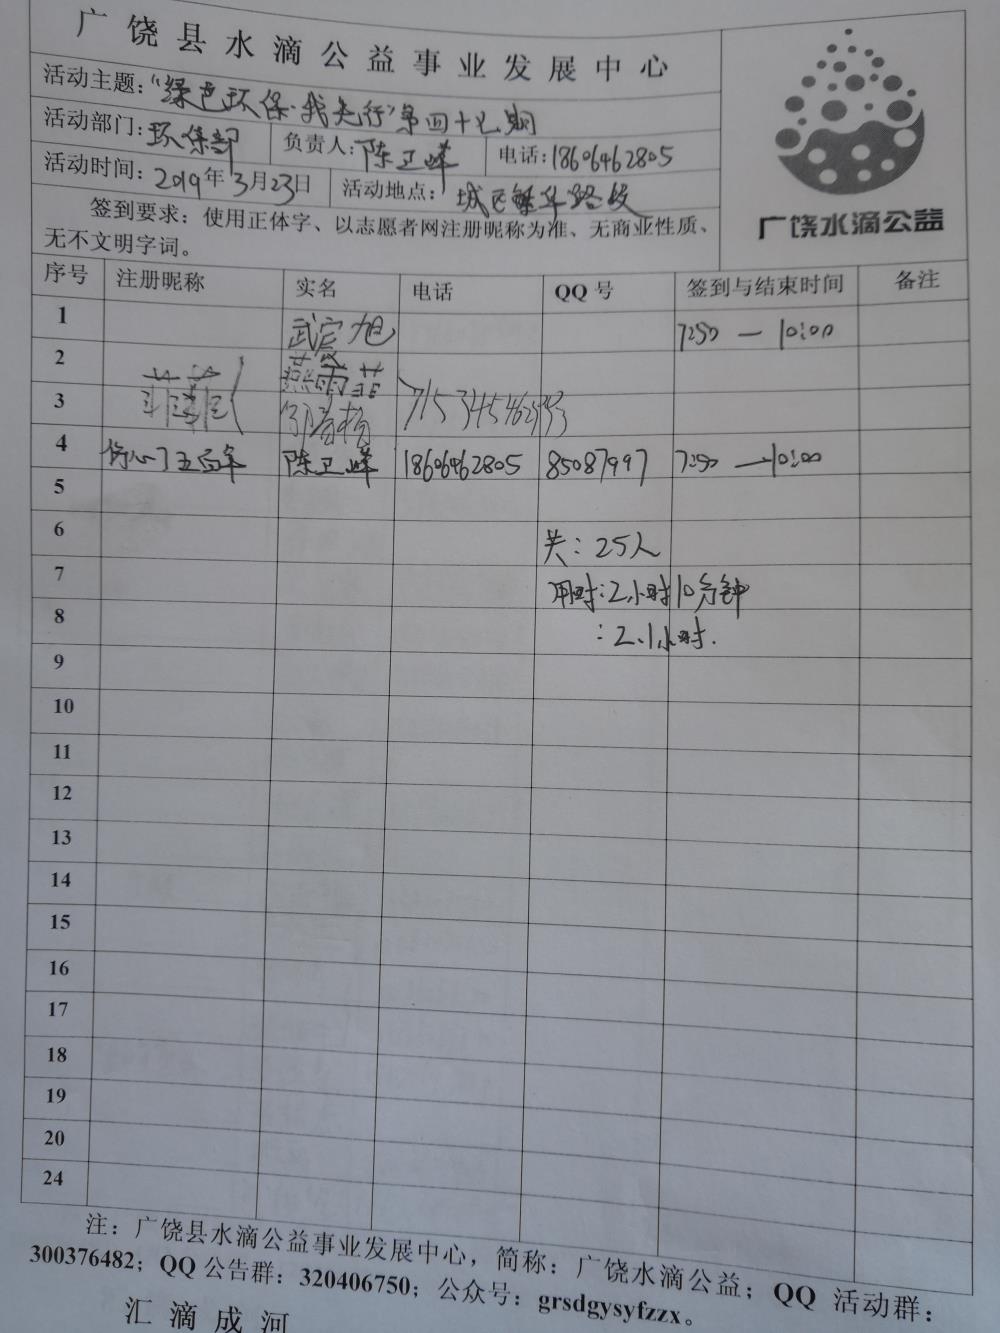 广饶县水滴公益事业发展中心
活动主题:“绿色环保·我先行”第四十七期
活动部门:环保部 负责人:陈卫峰 电话:18606462805
活动时间:2019年3月23日 活动地点:城区繁华路段
广饶水滴公益
签到要求：使用正体字、以志愿者网注册昵称为准、无商业性质、
无不文明字词。
序号 注册昵称 实名 电话 QQ号 签到与结束时间 备注
1 武宸旭 7:50 — 10:00
2 燕雨菲
3 菲菲
4 伤心了五百年 陈卫峰 18606462805 85087997 7:50 — 10:00
5
6 共：25人
7 用时:2小时10分钟
8 :2.1小时.
9
10
11
12
13
14
15
16
17
18
19
20
24
注：广饶县水滴公益事业发展中心，简称：广饶水滴公益；QQ 活动群：
300376482；QQ公告群：320406750；公众号：grsdgysyfzzx。
汇滴成河